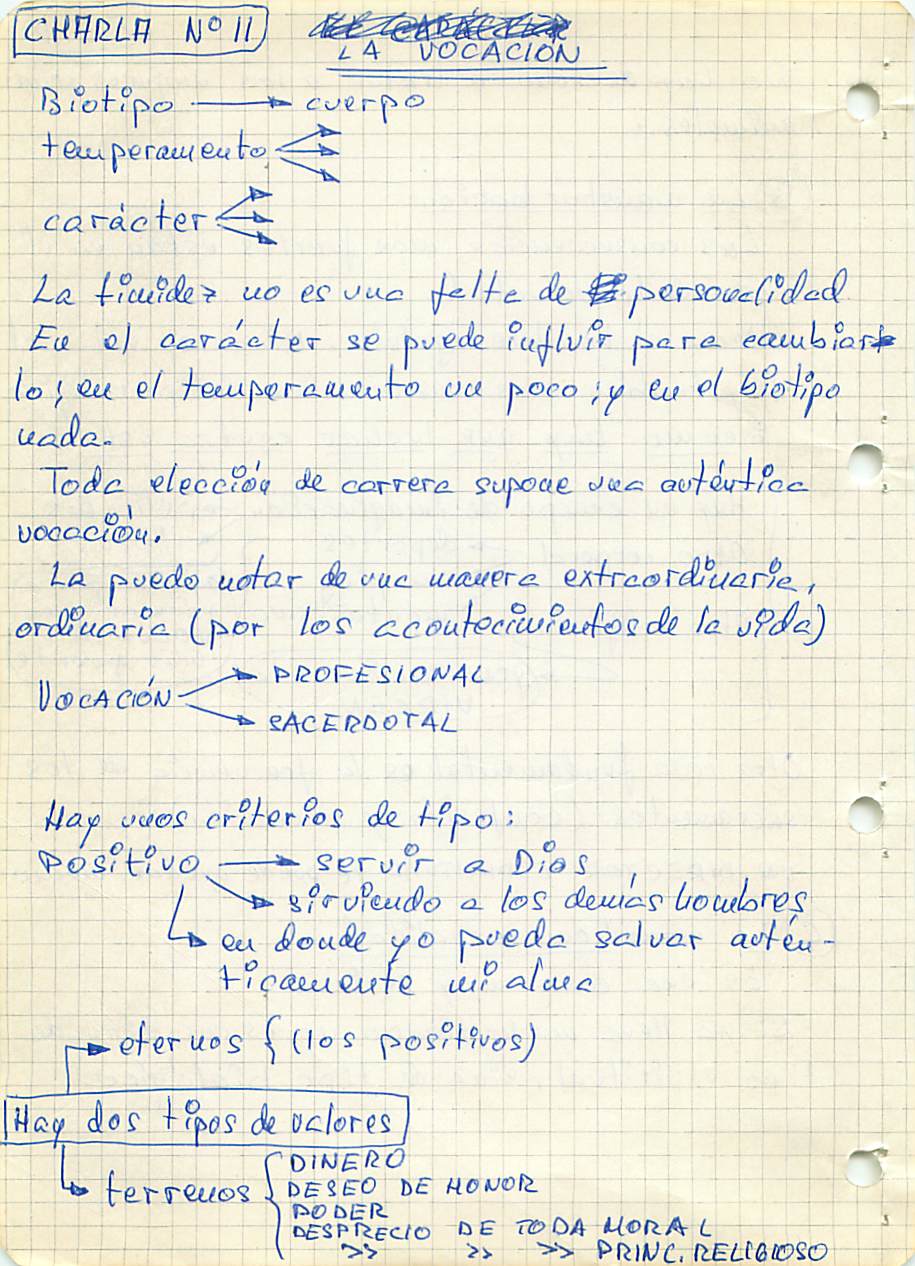 CHARLA Nº 11
LA VOCACIÓN
Biotipo → cuerpo
temperamento
carácter
La timidez no es una falta de personalidad
En el carácter se puede influir para cambiar
lo; en el temperamento un poco; y en el biotipo
nada.
Toda elección de carrera supone una auténtica
vocación.
La puedo notar de una manera extraordinaria,
ordinaria (por los acontecimientos de la vida)
VOCACIÓN → PROFESIONAL
→ SACERDOTAL
Hay unos criterios de tipo:
Positivo → servir a Dios,
→ sirviendo a los demás hombres
→ en donde yo pueda salvar autén-
ticamente mi alma
→ eternos { (los positivos)
Hay dos tipos de valores
→ terrenos { DINERO
DESEO DE HONOR
PODER
DESPRECIO DE TODA MORAL
>> >> >> PRINC. RELIGIOSO